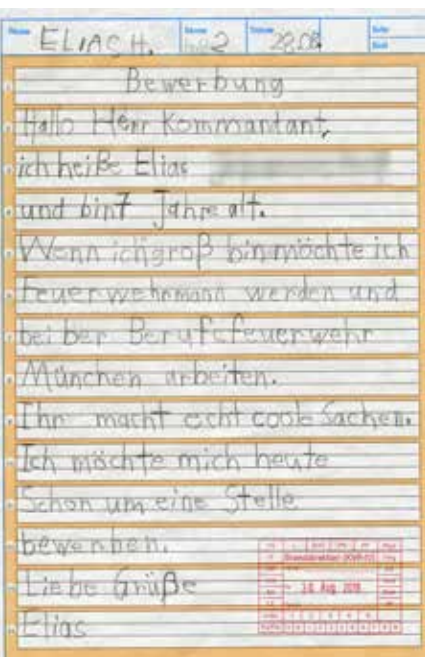 ELIAS H. 2 28.08.
Bewerbung
Hallo Herr Kommandant,
ich heiße Elias
und bin 7 Jahre alt.
Wenn ich groß bin möchte ich
Feuerwehrmann werden und
bei ber Berufsfeuerwehr
München arbeiten.
Ihr macht echt coole Sachen.
Ich möchte mich heute
Schon um eine Stelle
bewerben.
Liebe Grüße
Elias
30. Aug. 2018